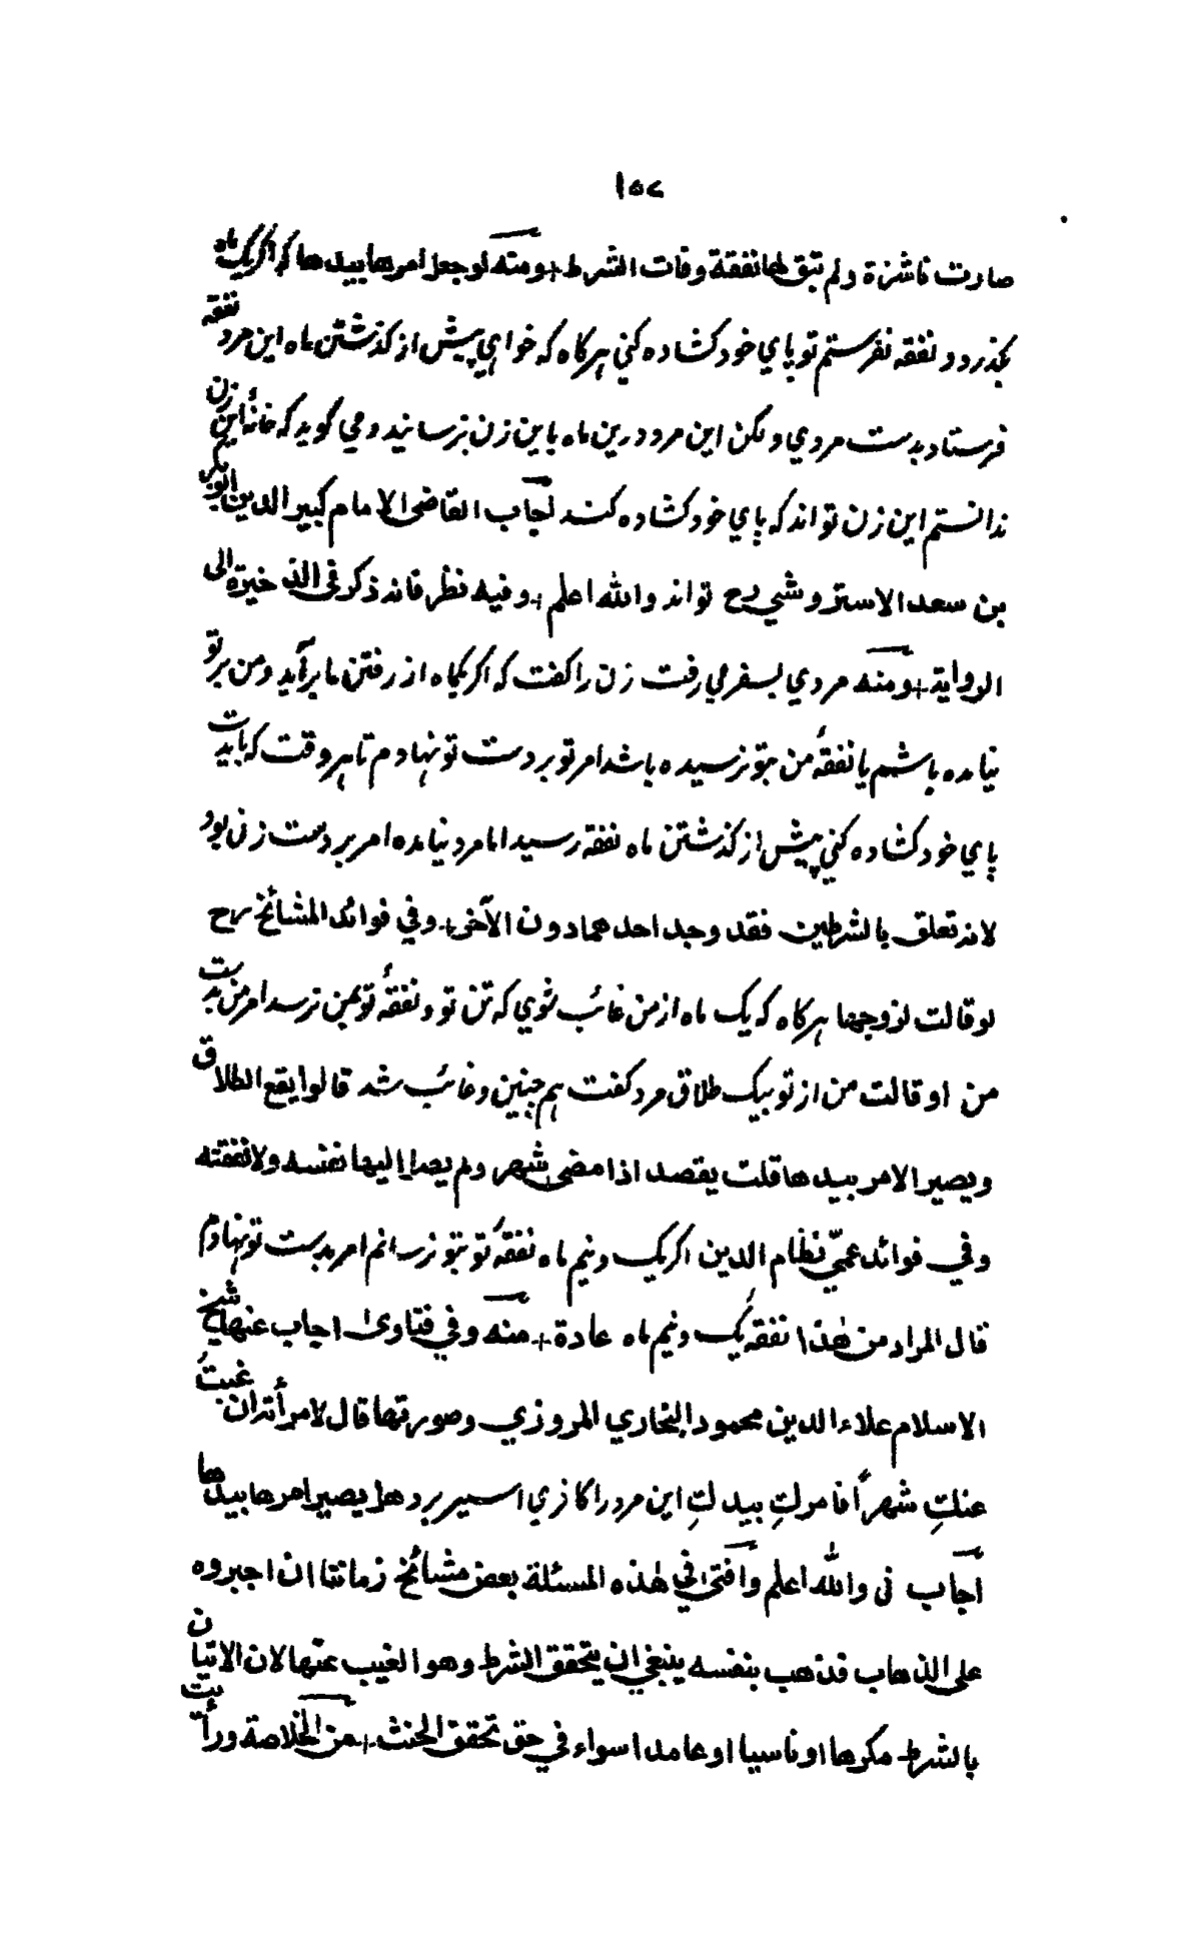 ١٥٧
صارت ناشزة ولم تبق لها نفقة وفات الشرط + ومنه لو جعل امرها بيدها كه اگر يك ماه
بگذرد و نفقه نفرستم تو پاي خود كشاده كني هر كاه كه خواهي پيش از كذشتن ماه اين مرد نفقه
فرستاد بدست مردي ولكن اين مرد درين ماه باين زن نرسانيد ومي گويد كه خانهٔ اين زن
ندانستم اين زن تواند كه پاي خود كشاده كند اجاب القاضى الامام كبير الدين ابو بكر
بن سعد الاستروشي رح تواند والله اعلم + وفيه نظر فانه ذكر فى الذخيرة الى
الرواية + ومنه مردي بسفر مي رفت زن را كفت كه اكر يكماه از رفتن ما برآيد ومن بر تو
نيامده باشم يا نفقهٔ من بتو نرسيده باشد امر تو بر دست تو نهادم تا هر وقت كه بايدت
پاي خود كشاده كني پيش از كذشتن ماه نفقه رسيد اما مرد نيامده امر بر دست زن بود
لانه تعلق بالشرطين فقد وجد احدهما دون الآخر + وفي فوائد المشائخ رح
لو قالت لزوجها هر كاه كه يك ماه از من غائب شوي كه تن تو و نفقهٔ تو بمن نرسد امر من بدست
من او قالت من از تو بيك طلاق مرد كفت هم چنين وغائب شد قالوا يقع الطلاق
ويصير الامر بيدها قلت يقصد اذا مضى شهر ولم يصل اليها نفسه ولا نفقته
وفي فوائد عمّي نظام الدين اكر يك ونيم ماه نفقهٔ تو بتو نرسانم امر بدست تو نهادم
قال المراد من هذا نفقهٔ يك ونيم ماه عادة + منه وفي فتاوى اجاب عنها شيخ
الاسلام علاء الدين محمود البخاري المروزي وصورتها قال لامرأته ان غبتُ
عنكِ شهراً فامركِ بيدكِ اين مرد را كافري اسير برد هل يصير امرها بيدها
اجاب نى والله اعلم وافتى في هذه المسئلة بعض مشائخ زماننا ان اجبروه
على الذهاب فذهب بنفسه ينبغي ان يتحقق الشرط وهو الغيب عنها لان الاتيان
بالشرط مكرها او ناسيا او عامدا سواء في حق تحقق الحنث + من الخلاصة ورأيت